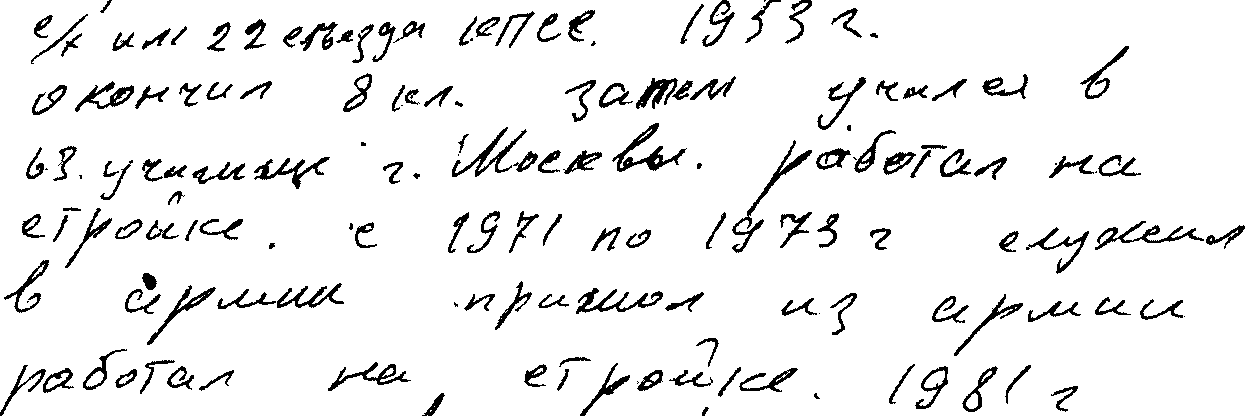 с/х им 22 съезда КПСС. 1953 г.
окончил 8 кл. затем учился в
63. училище г. Москвы. работал на
стройке. с 1971 по 1973 г служил
в армии пришол из армии
работал на стройке. 1981 г